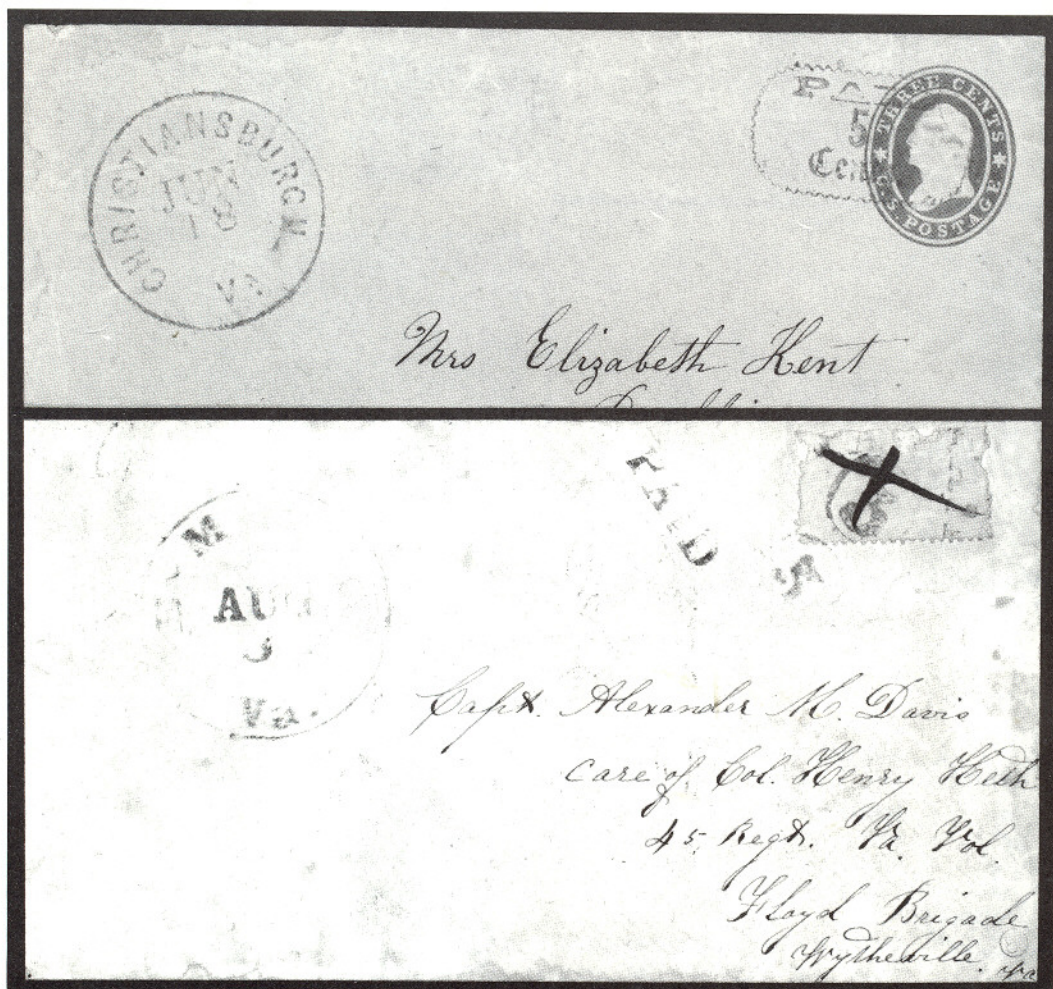 CHRISTIANSBURGH
JUN
1
VA
5
THREE CENTS
U.S. POSTAGE
Mrs Elizabeth Kent
PAID 5
M
AUG
VA.
Capt. Alexander M. Davis
Care of Col. Henry Heth
45 Regt. Va. Vol.
Floyd Brigade
Wytheville Va